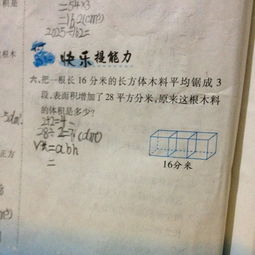 =54×3
=16.2(dm³)
2025
快乐提能力
六、把一根长 16 分米的长方体木料平均锯成 3
段,表面积增加了 28 平方分米,原来这根木料
的体积是多少?
2×2=4
28÷ =7(dm)
V长=abh
=
16分米